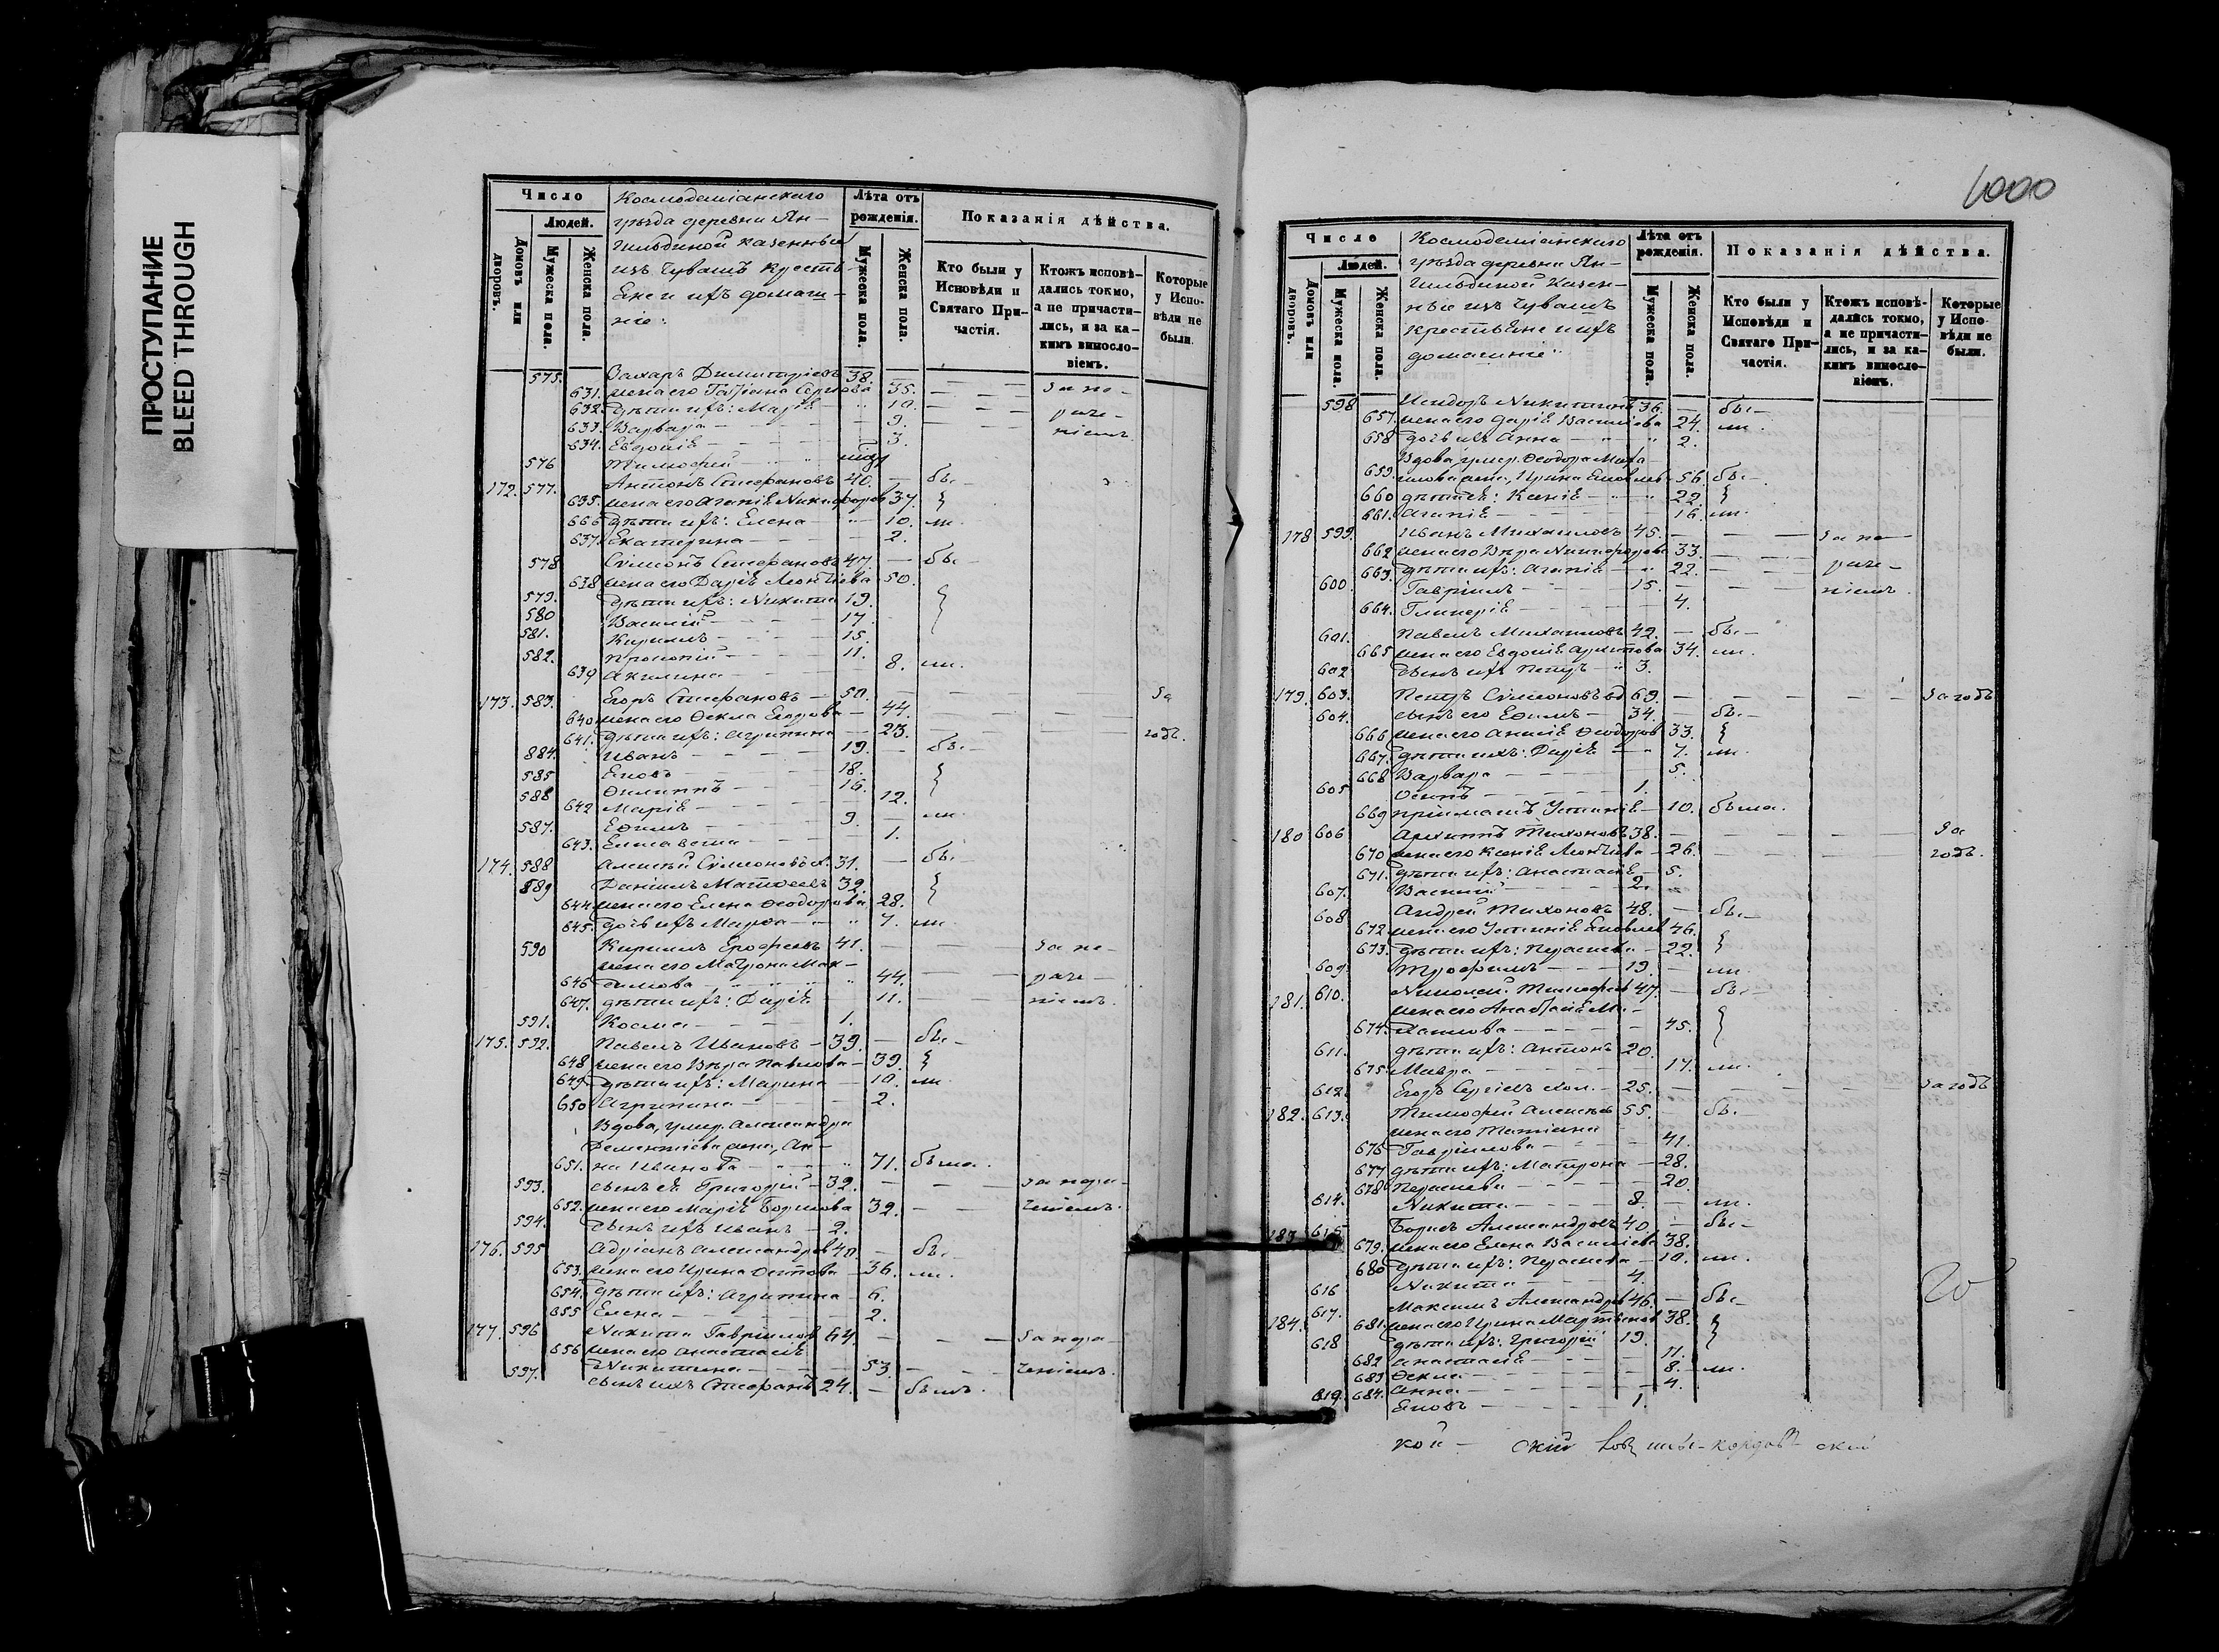 ПРОСТУПАНИЕ
BLEED THROUGH
Число
Людей.
Домовъ или дворовъ.
Мужеска пола.
Женска пола.
Космодеміанскаго
уѣзда деревни Ян-
гильдиной казенные
изъ Чувашъ кресть-
яне и ихъ домаш-
ніе:
Лѣта отъ рожденія.
Мужеска пола.
Женска пола.
Показанія дѣйства.
Кто были у Исповѣди и Святаго Причастія.
Ктожъ исповѣдались токмо, а не причастились, и за какимъ винословіемъ.
Которые у Исповѣди не были.
575. Захаръ Димитріевъ 38. — — за не-
631. жена его Татіана Сергѣева 35. — —
632. дѣти ихъ: Марія 10. — — раче-
633. Варвара 9. — — ніемъ
634. Евдокія 3.
576 Тимофей
172. 577. Антонъ Стефановъ 40. — бы-
635. жена его Агапія Никифоров 37.
636 дѣти ихъ: Елена 10. ли.
637. Екатерина 2.
578 Сѵмеонъ Стефановъ 47. — бы-
638 жена его Дарія Леонтіева 50.
579. дѣти ихъ: Никита 19.
580 Василій 17.
581. Кирилъ 15.
582. Прокопій 11.
639 Акилина 8. ли.
173. 583. Егоръ Стефановъ 50. — — за
640 жена его Ѳекла Егорова 44. — —
641. дѣти ихъ: Агрипина 23. — — годъ.
884. Иванъ 19. — бы-
585 Яковъ 18.
588 Филиппъ 16.
642 Марія 12.
587. Ефимъ 9. — ли.
643. Елисавета 1.
174. 588 Алексѣй Сѵмеоновъ х. 31. — бы-
589 Даніилъ Матѳеевъ 32.
644 жена его Елена Ѳеодорова 28.
645. дочь ихъ Марѳа 7. ли
590 Кирилъ Ерофеевъ 41. — — за не-
жена его Матрона Мак-
646 симова 44. — — раче-
647. дѣти ихъ: Дарія 11. — — ніемъ.
591. Косма 1.
175. 592. Павелъ Ивановъ 39. — бы-
648 жена его Вѣра Павлова 39.
649. дѣти ихъ: Марина 10. ли.
650 Агрипина 2.
Вдова, умер. Александра
Дементіева жена, Ан-
651. на Иванова 71. была.
593. сынъ ея Григорій 32. — — за нера-
652. жена его Марія Борисова 32. — — ченіемъ.
594. сынъ ихъ Иванъ 2.
176. 595 Адріанъ Александров 40. — бы-
653. жена его Ирина Осипова 36. ли.
654. дѣти ихъ: Агрипина 6.
655 Елена 2.
177. 596 Никита Гавріилов 64. — — за нера-
656 жена его Анастасія
Никитина 53. — — ченіемъ.
597. сынъ ихъ Стефанъ 24. — былъ.
1000
Число
Людей.
Домовъ или дворовъ.
Мужеска пола.
Женска пола.
Космодеміанскаго
уѣзда деревни Ян-
гильдиной Казен-
ные изъ Чувашъ
крестьяне и ихъ
домашніе:
Лѣта отъ рожденія.
Мужеска пола.
Женска пола.
Показанія дѣйства.
Кто были у Исповѣди и Святаго Причастія.
Ктожъ исповѣдались токмо, а не причастились, и за какимъ винословіемъ.
Которые у Исповѣди не были.
598 Исидоръ Никитинъ 36. — бы-
657. жена его Дарія Василіева 24. ли.
658 дочь ихъ Анна 2.
Вдова, умер. Ѳеодора Миха-
659. илова жена, Ирина Яковлев 56. бы-
660 дѣти ея: Ксенія 22.
661. Агапія 16. ли.
178 599 Иванъ Михаиловъ 45. — — за не-
662 жена его Вѣра Никифорова 33. — —
663. дѣти ихъ: Агапія 22. — — раче-
600. Гавріилъ 15. — — ніемъ.
664. Гликерія 4.
601. Павелъ Михаиловъ 42. — бы-
665 жена его Евдокія 34. ли.
602 сынъ ихъ Петръ 3.
179. 603. Петръ Сѵмеоновъ вд 69. — — за годъ
604. сынъ его Ефимъ 34. — бы-
666 жена его Анисія Ѳеодоров 33.
667. дѣти ихъ: Дарія 7. ли.
668 Варвара 5.
605 Осипъ 1.
669 пріимышъ Устинія 10. была.
180 606 Архиппъ Тихоновъ 38. — — за
670 жена его Ксенія Леонтіева 26. — — годъ.
671. дѣти ихъ: Анастасія 5.
607. Василій 2.
608 Андрей Тихоновъ 48. — бы-
672 жена его Устинія Яковлев 46.
673. дѣти ихъ: Параскева 22.
609 Трофимъ 19. — ли.
181. 610. Николай Тимофеев 47. — бы-
жена его Анастасія Ми-
674 хаилова 45.
611. дѣти ихъ: Антонъ 20.
675 Мавра 17. ли.
612. Егоръ Сергѣевъ хол. 25. — — за годъ
182. 613. Тимофей Алексѣев 55. — бы-
жена его Татіана
676 Гавріилова 41.
677 дѣти ихъ: Матрона 28.
678 Параскева 20.
614. Никита 8. — ли.
183 615 Борисъ Александровъ 40. — бы-
679. жена его Елена Василіева 38.
680 дѣти ихъ: Параскева 10. ли.
616 Никита 4.
184. 617. Максимъ Александров 46. — бы-
681. жена его Ирина Мартынов 38.
618 дѣти ихъ: Григорій 19.
682 Анастасія 11.
683 Ѳекла 8. ли.
684. Анна 4.
619. Яковъ 1.
кой — скій